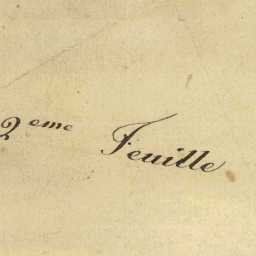 2eme Feuille